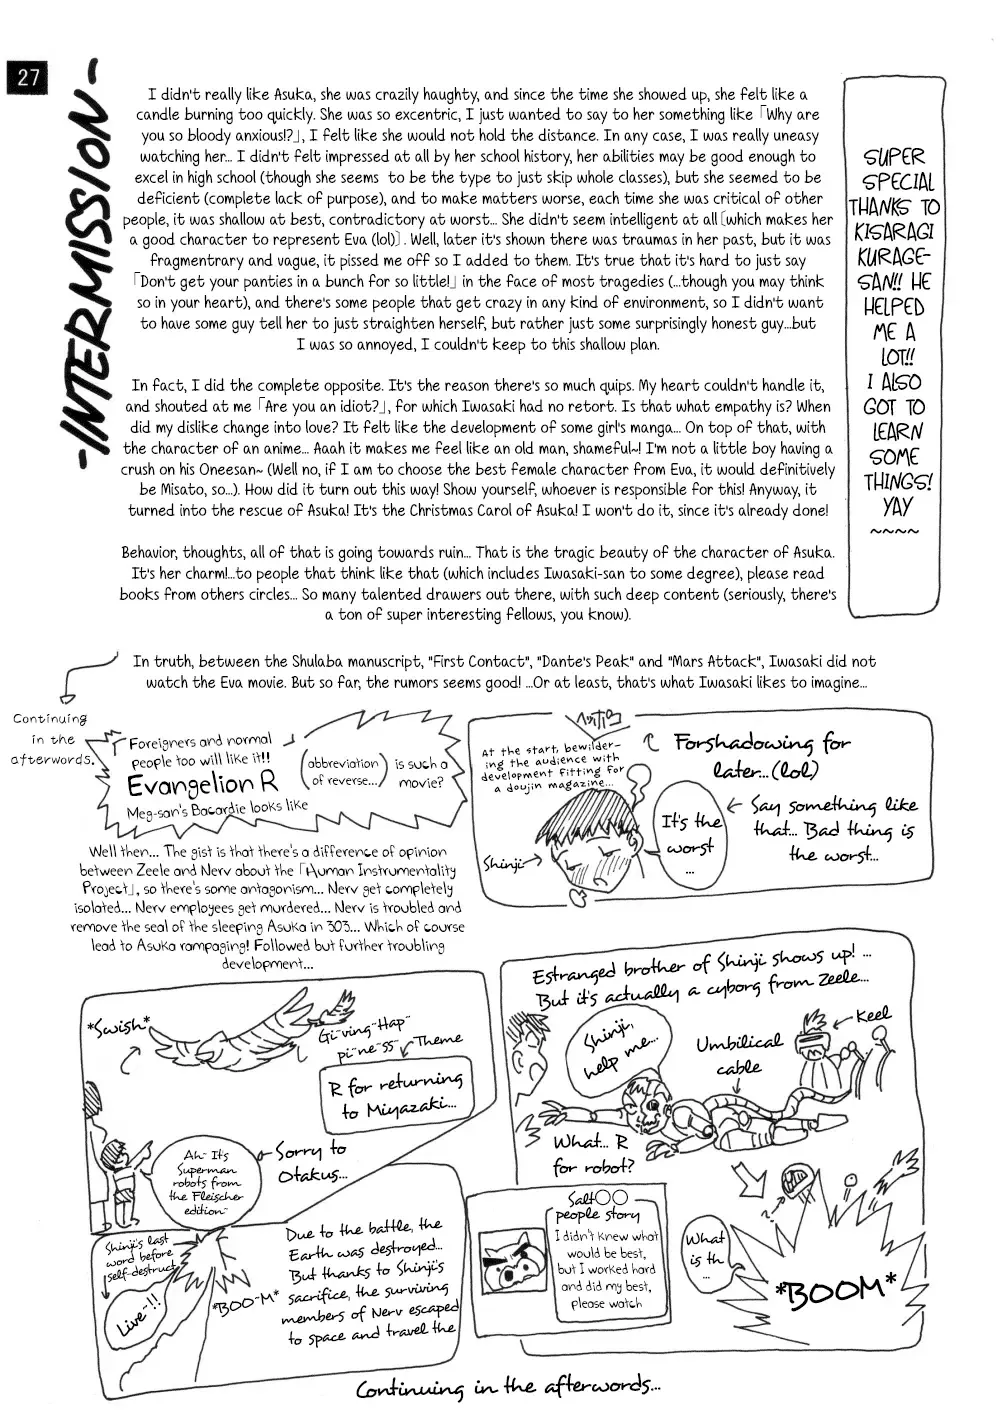 27
-INTERMISSION-
I didn't really like Asuka, she was crazily haughty, and since the time she showed up, she felt like a
candle burning too quickly. She was so excentric, I just wanted to say to her something like「Why are
you so bloody anxious!?」, I felt like she would not hold the distance. In any case, I was really uneasy
watching her... I didn't felt impressed at all by her school history, her abilities may be good enough to
excel in high school (though she seems to be the type to just skip whole classes), but she seemed to be
deficient (complete lack of purpose), and to make matters worse, each time she was critical of other
people, it was shallow at best, contradictory at worst... She didn't seem intelligent at all [which makes her
a good character to represent Eva (lol)] . Well, later it's shown there was traumas in her past, but it was
fragmentrary and vague, it pissed me off so I added to them. It's true that it's hard to just say
「Don't get your panties in a bunch for so little!」 in the face of most tragedies (...though you may think
so in your heart), and there's some people that get crazy in any kind of environment, so I didn't want
to have some guy tell her to just straighten herself, but rather just some surprisingly honest guy...but
I was so annoyed, I couldn't keep to this shallow plan.
In fact, I did the complete opposite. It's the reason there's so much quips. My heart couldn't handle it,
and shouted at me「Are you an idiot?」, for which Iwasaki had no retort. Is that what empathy is? When
did my dislike change into love? It felt like the development of some girl's manga... On top of that, with
the character of an anime... Aaah it makes me feel like an old man, shameful~! I'm not a little boy having a
crush on his Oneesan~ (Well no, if I am to choose the best female character from Eva, it would definitively
be Misato, so...). How did it turn out this way! Show yourself, whoever is responsible for this! Anyway, it
turned into the rescue of Asuka! It's the Christmas Carol of Asuka! I won't do it, since it's already done!
Behavior, thoughts, all of that is going towards ruin... That is the tragic beauty of the character of Asuka.
It's her charm!...to people that think like that (which includes Iwasaki-san to some degree), please read
books from others circles... So many talented drawers out there, with such deep content (seriously, there's
a ton of super interesting fellows, you know).
In truth, between the Shulaba manuscript, "First Contact", "Dante's Peak" and "Mars Attack", Iwasaki did not
watch the Eva movie. But so far, the rumors seems good! ...Or at least, that's what Iwasaki likes to imagine...
SUPER
SPECIAL
THANKS TO
KISARAGI
KURAGE-
SAN!! HE
HELPED
ME A
LOT!!
I ALSO
GOT TO
LEARN
SOME
THINGS!
YAY
~~~~
Continuing
in the
afterwords.
Foreigners and normal
people too will like it!!
Evangelion R
Meg-san's Bacardie looks like
(abbreviation
of reverse...)
is such a
movie?
At the start, bewilder-
ing the audience with
development fitting for
a doujin magazine...
Forshadowing for
later...(lol)
Shinji
It's the
worst
...
Say something like
that... Bad thing is
the worst...
Well then... The gist is that there's a difference of opinion
between Zeele and Nerv about the「Human Instrumentality
Project」, so there's some antagonism... Nerv get completely
isolated... Nerv employees get murdered... Nerv is troubled and
remove the seal of the sleeping Asuka in 303... Which of course
lead to Asuka rampaging! Followed but further troubling
development...
*Swish*
Gi~ving~Hap~
pi~ne~ss~
Theme
R for returning
to Miyazaki...
Ah~ It's
Superman
robots from
the Fleischer
edition~
Sorry to
Otakus...
Estranged brother of Shinji shows up! ...
But it's actually a cyborg from Zeele...
Shinji,
help me...
Umbilical
cable
Keel
What... R
for robot?
Shinji's last
word before
self-destruct
Live~!!
*BOO~M*
Due to the battle, the
Earth was destroyed...
But thanks to Shinji's
sacrifice, the surviving
members of Nerv escaped
to space and travel the
Salt○○
people story
I didn't knew what
would be best,
but I worked hard
and did my best,
please watch
What
is th
...
*BOOM*
Continuing in the afterwords...